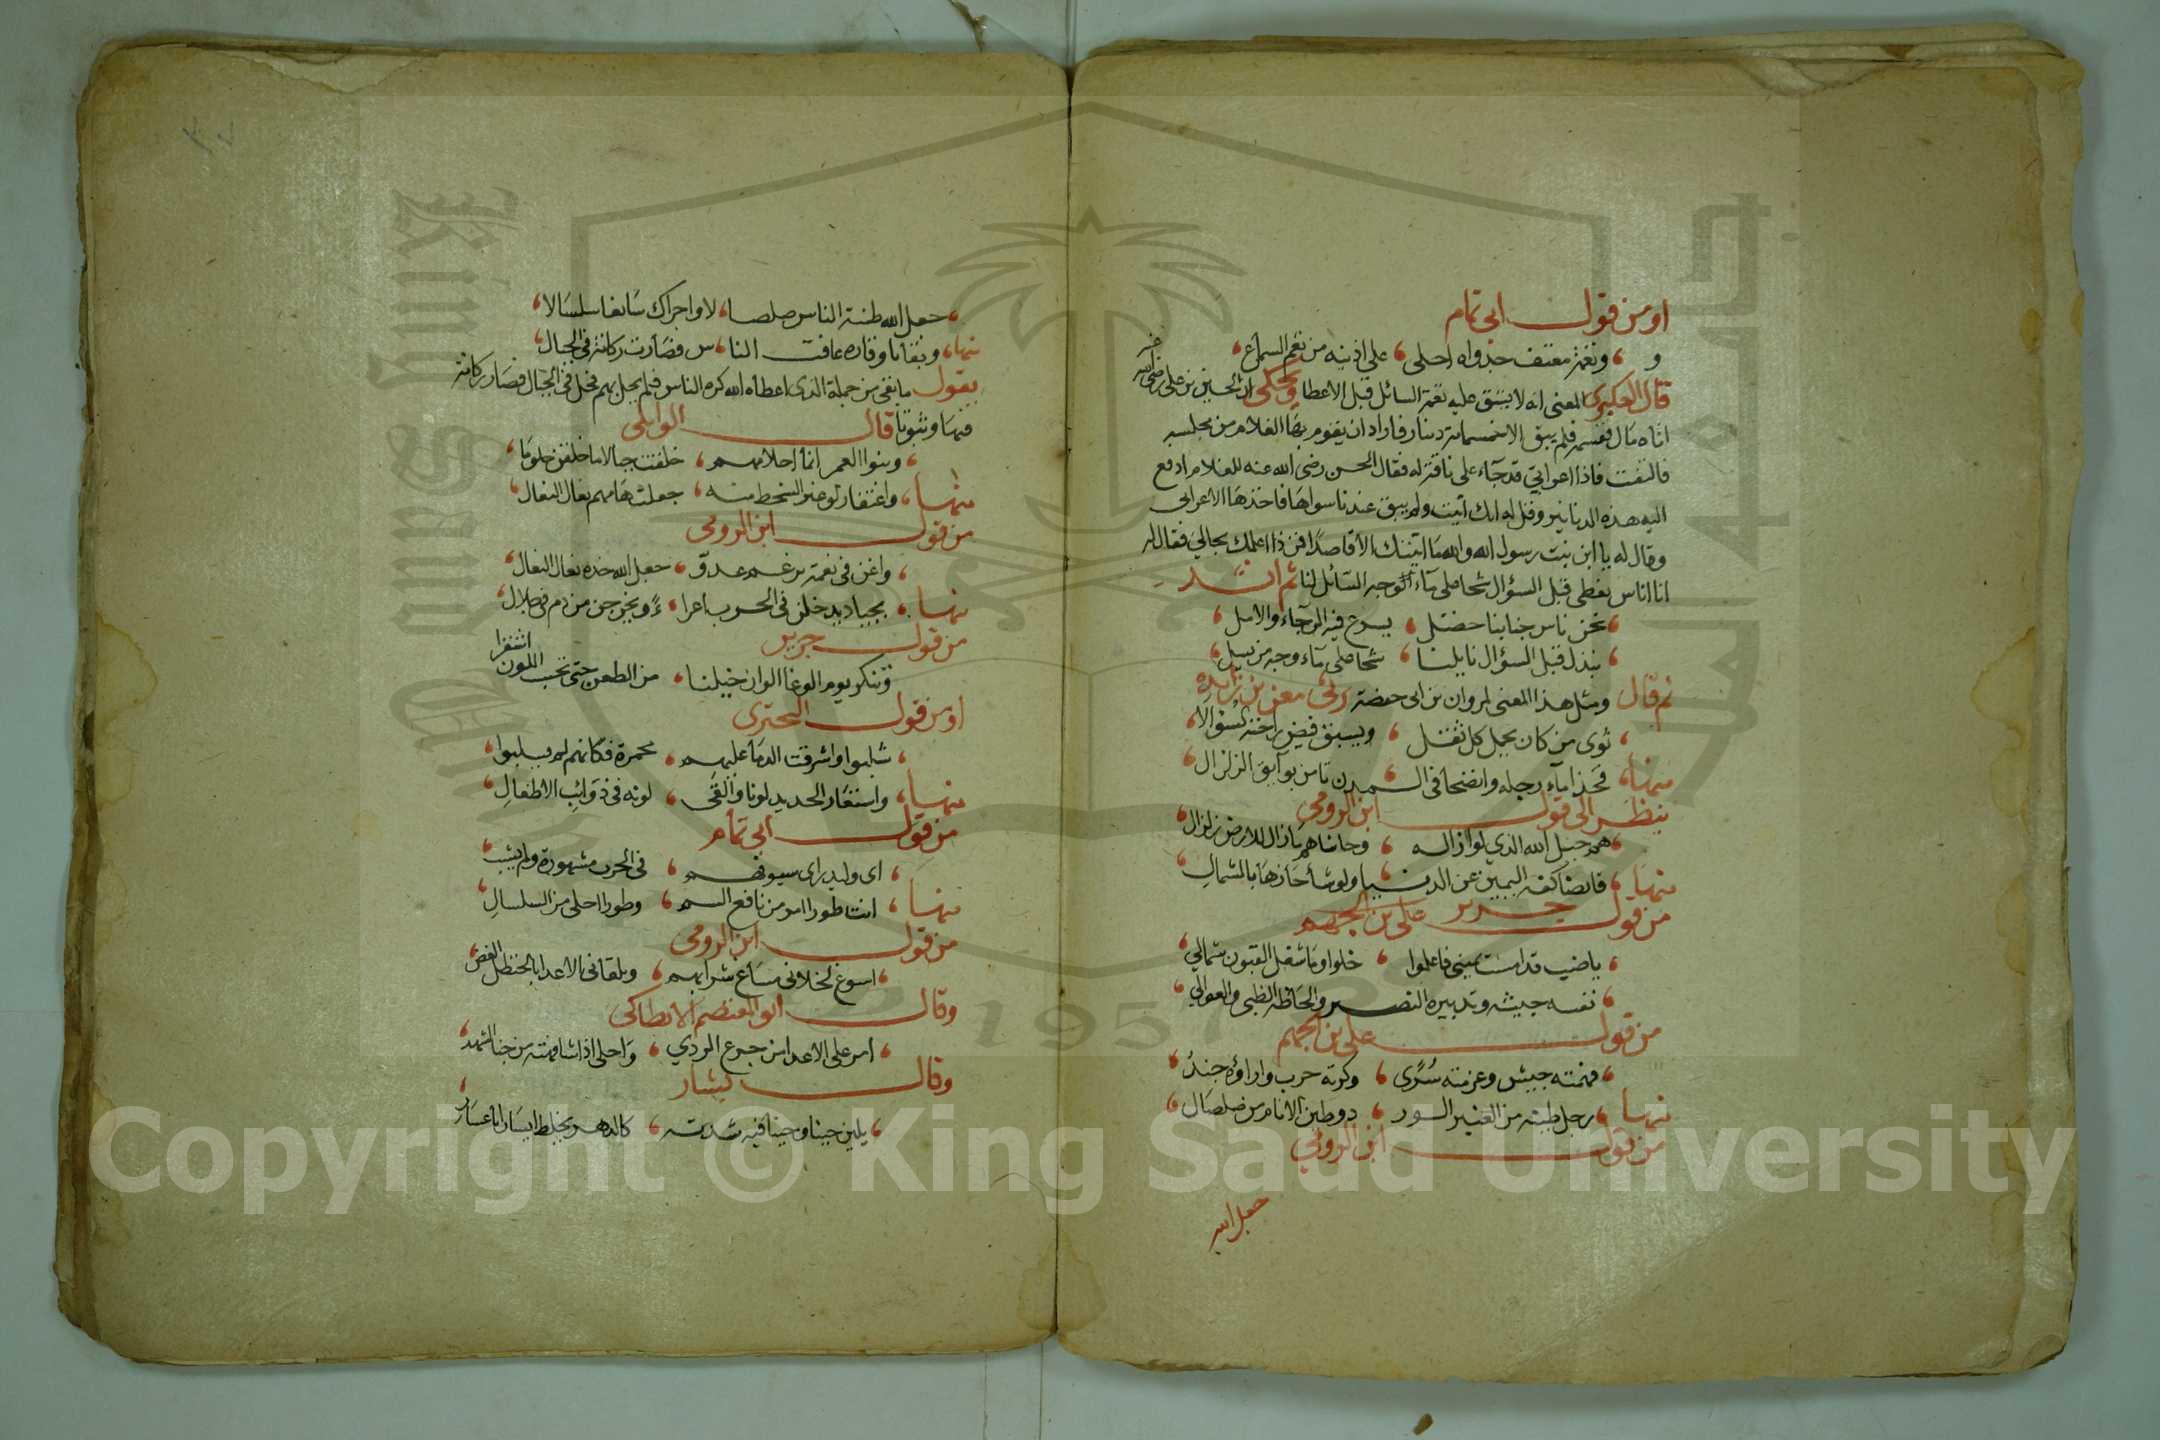 او من قول ابي تمام
و ونغمة معتف جدواه احلى على اذنيه من نغم السماع
قال العكبري المعنى انه لا يشق عليه نغمة السائل قبل الاعطا ويحكى ان الحسين بن على رضي الله عنه
اتاه مال فقسمه فلم يبق الا خمسمائة دينار فاراد ان يقوم بها الغلام من مجلسه
فالتفت فاذا اعرابي قد جآء على ناقته له فقال الحسن رضى الله عنه للغلام ادفع
اليه هذه الدنانير وقل له انك اتيت ولم يبق عندنا سواها فاخذها الاعرابى
وقال له يا ابن بنت رسول الله والله ما اتيتك الا قاصدا فمن ذا اعلمك بحالي فقال له
انا اناس نعطى قبل السؤال شحا على مآء الوجه السائل لنا ثم انشد
نحن ناس جنابنا خضل يسرع فيه الرجآء والامل
نبذل قبل السؤال نايلنا شحا على مآء وجه من يسل
ثم قال ومثل هذا المعنى لمروان بن ابى حفصة رثى معن بن زايده
ثوى من كان يحمل كل ثقل ويسبق فيض راحته السؤالا
منها فخذا مآء رجله وانضحا فى المدن تامن بوآيق الزلزال
ينظر الى قول ابن الرومي
هم جبل الله الذي لو ازاله وحاشاهم ما زال للارض زلزال
منها قابضا كفه اليمين عن الدنيا ولو شآ حازها بالشمال
من قول جرير على بن الجهم
ياضب قد امست يمينى فاعلموا خلوا وما شغل القبون شمالي
نفسه جيشه وتدبيره النصر والحاظه الظبى والعوالي
من قول على بن الجهم
فهمته جيش وعزمته سرى وكرته حرب واراؤه جند
منها رجل طينه من العنبر الورد وطين الانام من صلصال
من قول ابن الرومي
جعل الله
جعل الله طينة الناس صلصا لا واجراك سايغا سلسالا
منها وبقايا وقاره عافت الناس فصارت ركانة فى الجبال
يقول ما بقى من جملة الذى اعطاه الله كره الناس فلم يحل بهم فحل فى الجبال فصار ركانة
فيها وثبوتا قال الوايلى
وبنوا العمر انما احلامهم خلقت جبالا ما خلقن حلوما
منها واغتفار لو غير السخط منه جعلت هامهم نعال النعال
من قول ابن الرومي
واغن فى نعمة برغم عدو جعل الله خده نعال النعال
منها بجياد يدخلن فى الحرب اعرا ء ويخرجن من دم فى جلال
من قول جرير
وتنكر يوم الوغا الوان خيلنا من الطعن حتى تحسب اللون اشقرا
او من قول البحترى
سلبوا واشرقت الدما عليهم محمرة فكانهم لم يسلبوا
منها واستعار الحديد لونا والقى لونه فى ذوائب الاطفال
من قول ابى تمام
اى وليد راى سيوفهم فى الحرب مشهورة ولم يشب
منها انت طورا امر من ناقع السم وطورا احلى من السلسال
من قول ابن الرومي
اسوغ لخلانى مساغ شرابهم وتلقانى الاعدا بالحنظل الغض
وقال ابو المعتصم الانطاكى
امر على الاعدا من جرع الردي واحلى اذا شافهته من جنا الشهد
وقال بشار
يلين حينا وحينا فيه شدته كالدهر يخلط ايسارا باعسار
Copyright © King Saud University
1957